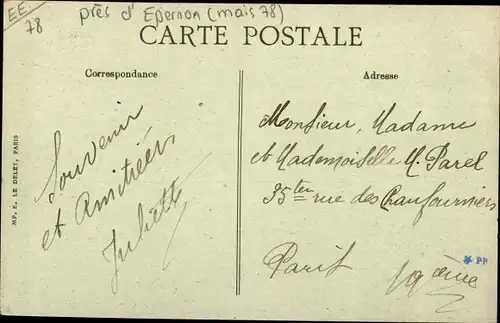 EE.
78
près d'Epernon (mais 78)
CARTE POSTALE
Correspondance
Adresse
Souvenir
et Amitiées
Juliette
Monsieur, Madame
et Mademoiselle M. Parel
35ter rue des Chaufourniers
Paris 19ème
MP. E. LE DELEY, PARIS
PP